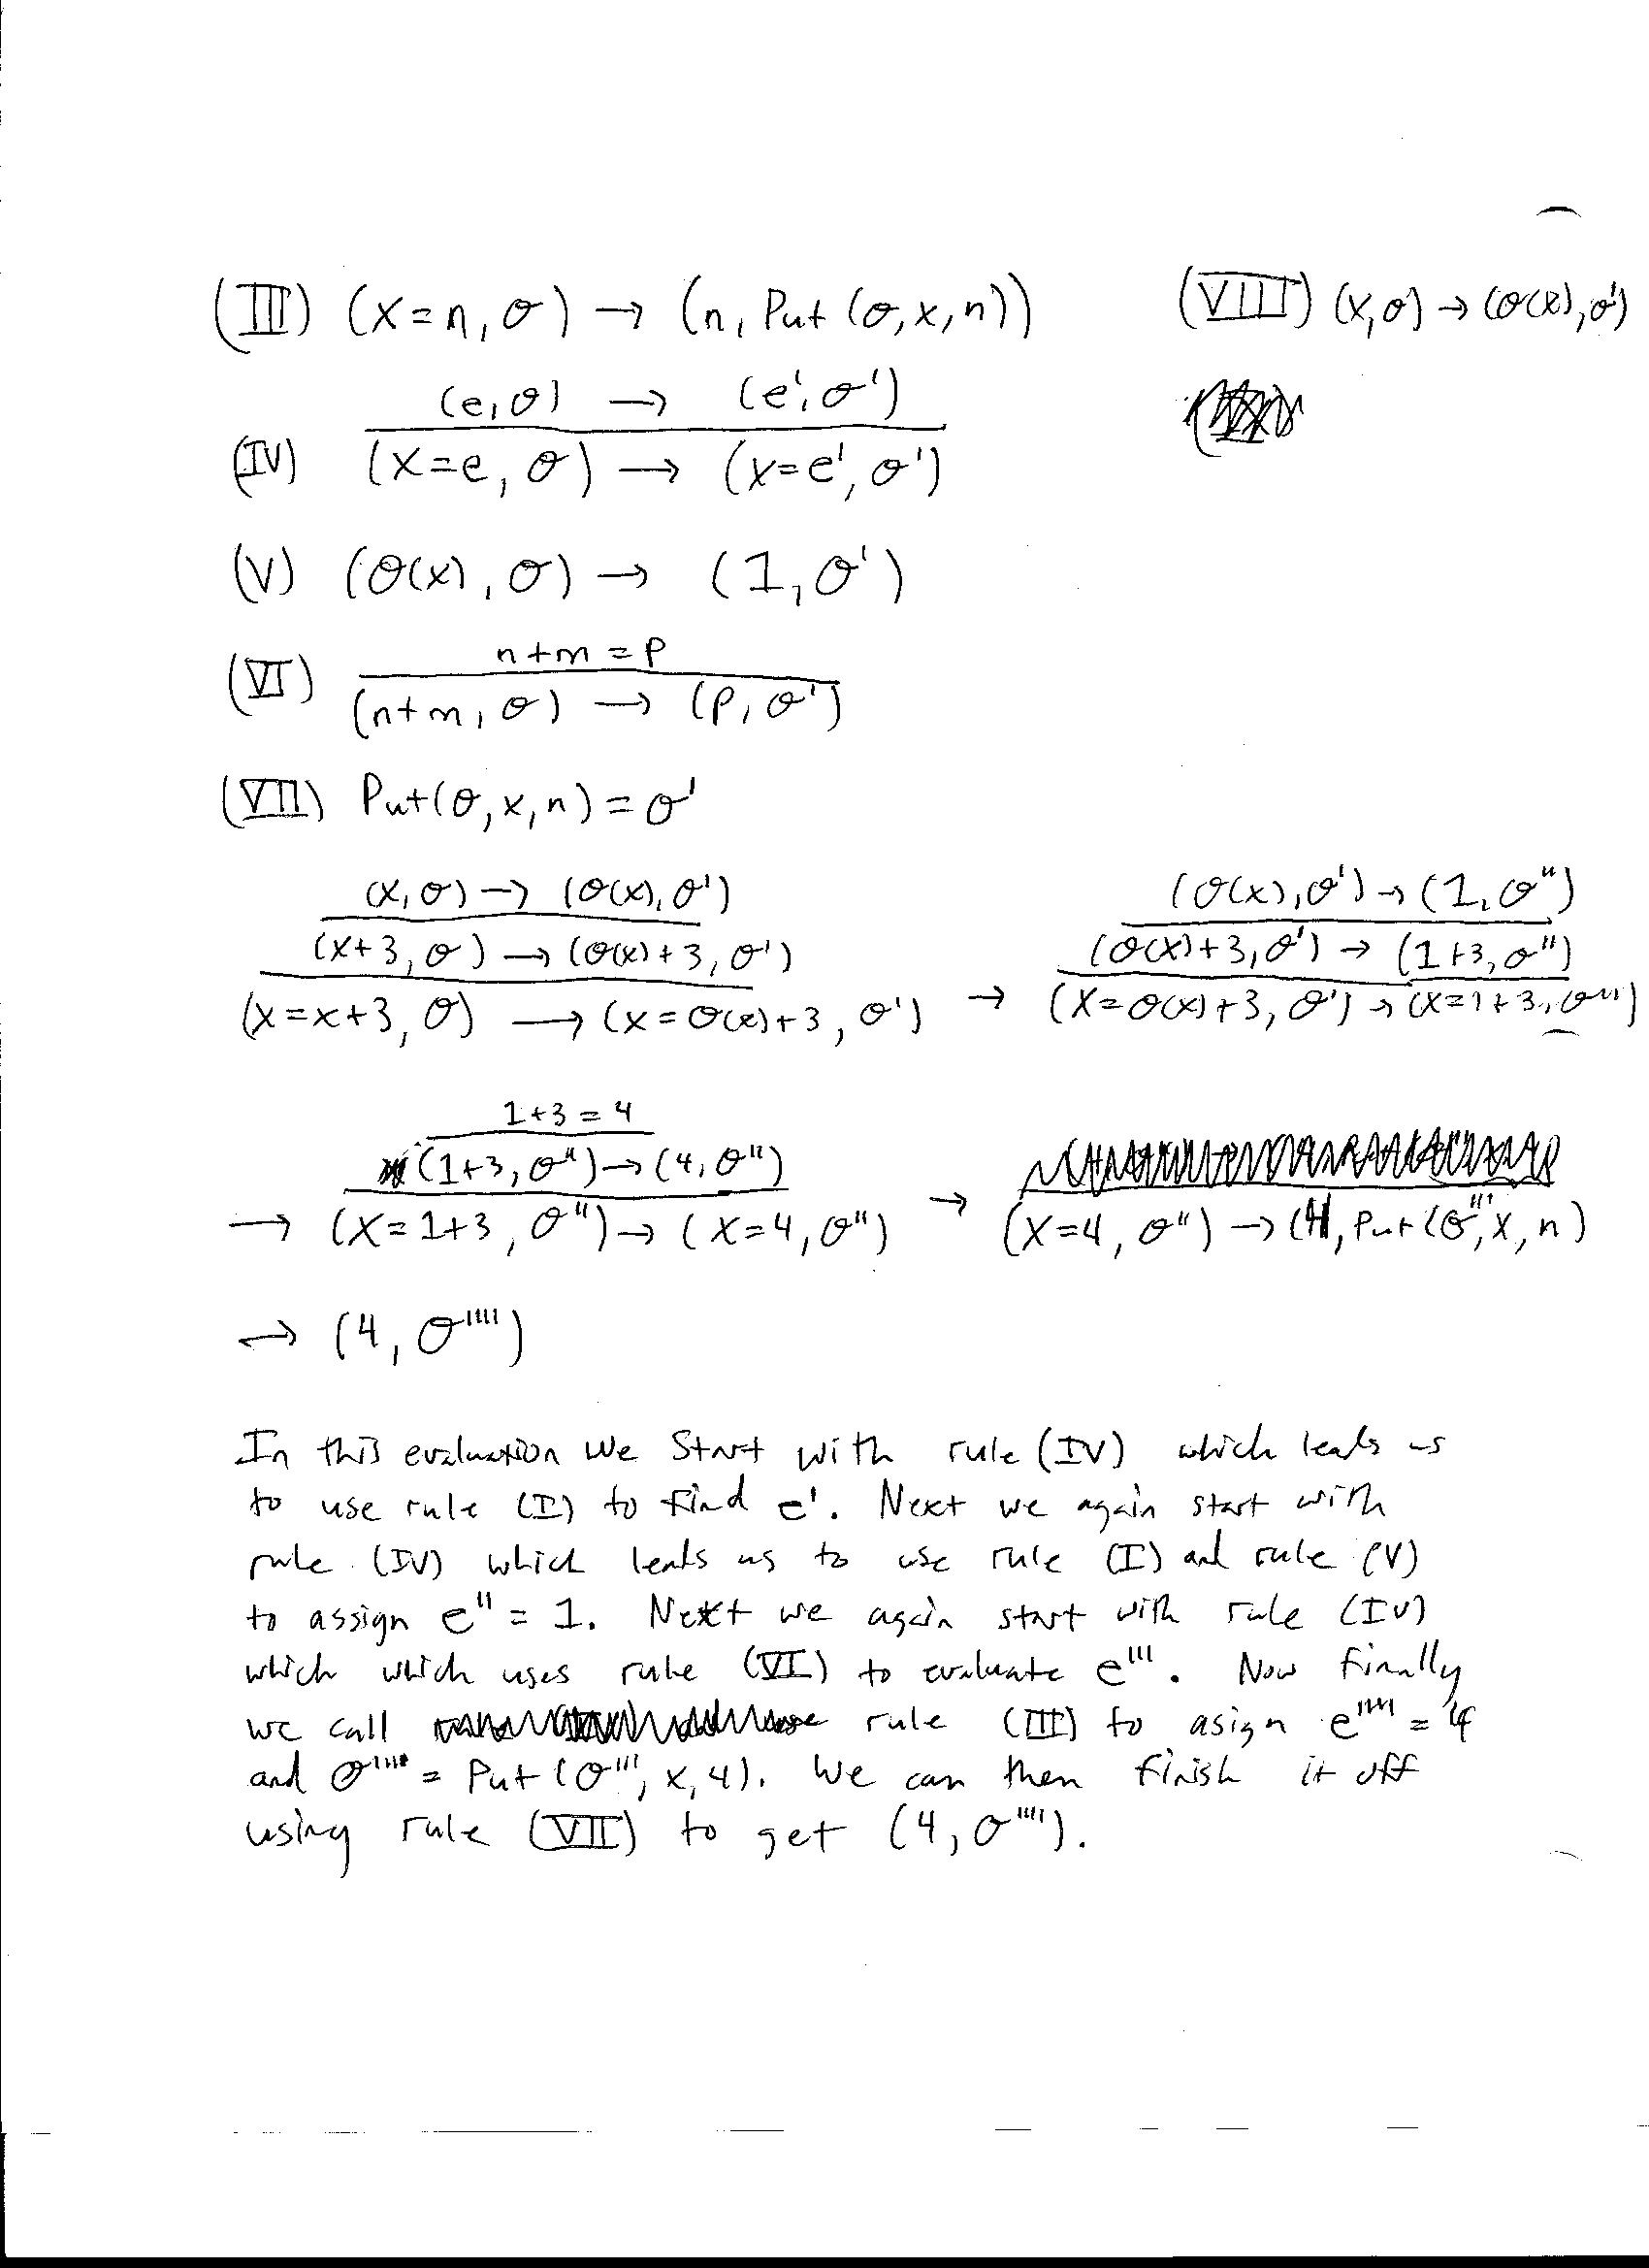 (III) (x=n, σ) → (n, Put (σ,x,n))
(VIII) (x,σ) → (σ(x),σ')
(e,σ) → (e',σ')
(IV) (x=e, σ) → (x=e', σ')
(V) (σ(x), σ) → (1, σ')
n+m = p
(VI) (n+m, σ) → (p, σ')
(VII) Put(σ,x,n) = σ'
(x,σ) → (σ(x),σ')
(x+3, σ) → (σ(x)+3, σ')
(x=x+3, σ) → (x=σ(x)+3, σ')
(σ(x),σ') → (1,σ'')
(σ(x)+3,σ') → (1+3,σ'')
→ (x=σ(x)+3, σ') → (x=1+3, σ''')
1+3 = 4
(1+3, σ'') → (4, σ'')
→ (x=1+3, σ'') → (x=4, σ'')
→ (x=4, σ'') → (4, Put(σ''',x,n)
→ (4, σ'''')
In this evaluation we start with rule (IV) which leads us
to use rule (I) to find e'. Next we again start with
rule (IV) which leads us to use rule (I) and rule (V)
to assign e'' = 1. Next we again start with rule (IV)
which which uses rule (VI) to evaluate e'''. Now finally
we call rule (III) to asign e'''' = 4
and σ'''' = Put(σ''', x, 4). We can then finish it off
using rule (VII) to get (4, σ'''').